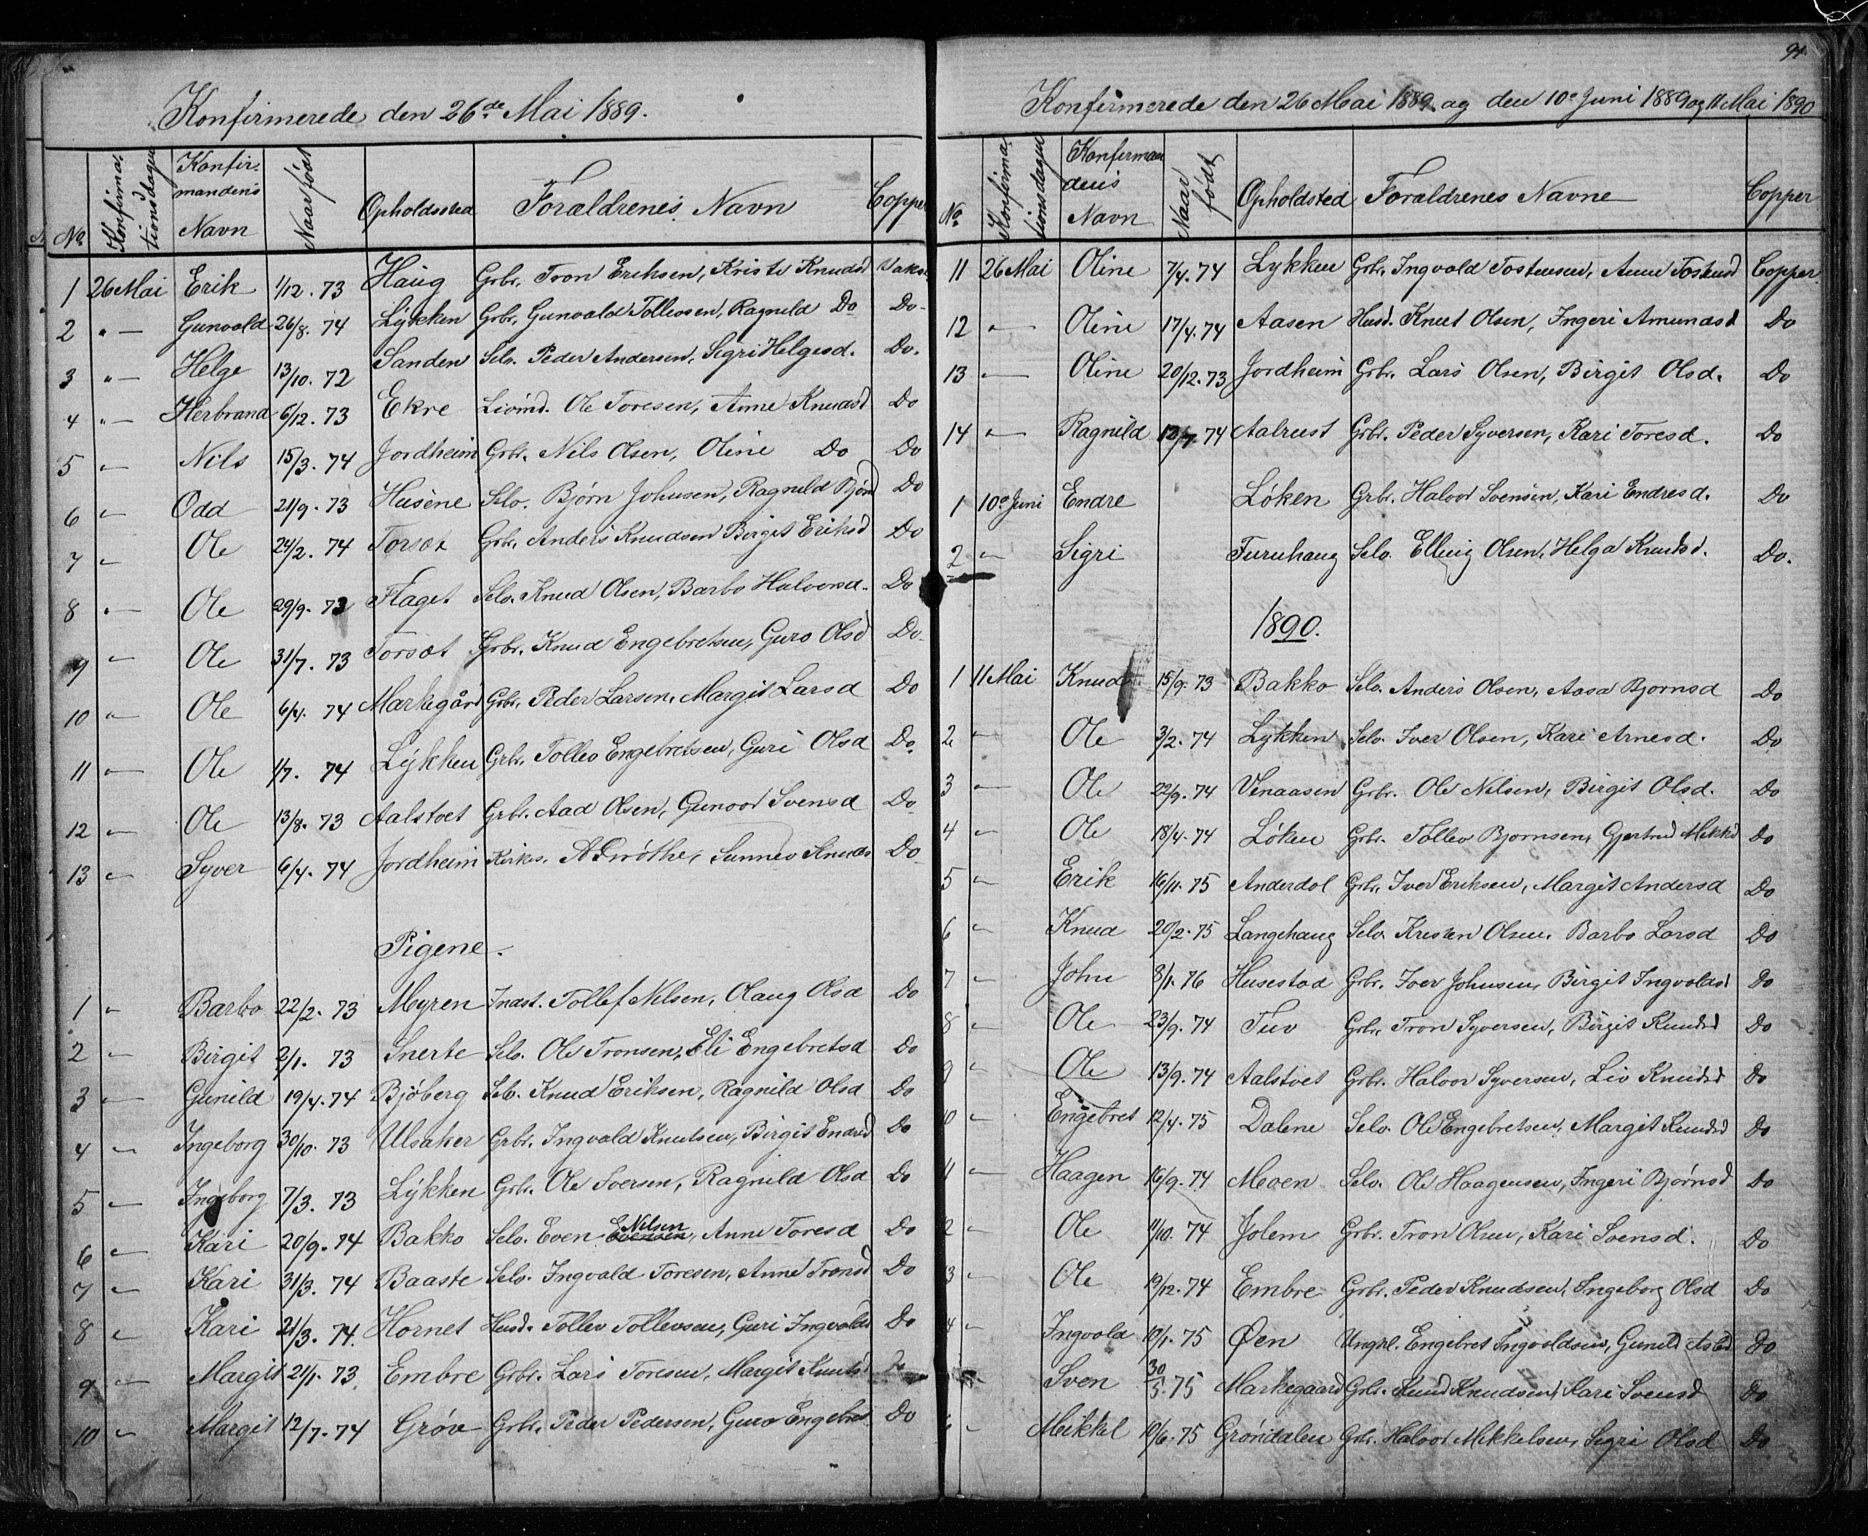 Konfirmerede den 26de Mai 1889.
No. Konfirmationsdagen Konfirmandens Navn Naar født Opholdssted Forældrenes Navn Copper
1 26 Mai Erik 1/12. 73 Haug Grbr. Tron Eriksen, Kristi Knudsd Vaks.
2 " — Gunvald 26/8. 74 Lykken Grbr. Gunvald Tollevsen, Ragnild Do Do
3 " — Helge 13/10. 72 Sanden Selv. Peder Andersen, Sigri Helgesd. Do.
4 " — Herbrand 6/12. 73 Ekre Livsmd. Ole Toresen, Anne Knudsd Do
5 " Nils 15/3. 74 Jordheim Grbr. Nils Olsen, Oline Do Do
6 " Odd 21/9. 73 Husene Selv. Bjørn Johnsen, Ragnild Bjørnd Do
7 " Ole 24/2. 74 Torset Grbr. Anders Knudsen Birgit Eriksd Do
8 " Ole 29/9. 73 Flaget Selv. Knud Olsen, Barbo Halvorsd. Do
9 " Ole 31/7. 73 Torset Grbr. Knud Engebretsen, Guro Olsd Do
10 " Ole 6/4. 74 Markegård Grbr. Peder Larsen, Margit Larsd Do
11 " Ole 1/7. 74 Lykken Grbr. Tollev Engebretsen, Guri Olsd Do.
12 " Ole 13/8. 73 Aalstvet Grbr. Aad Olsen, Gunvor Svensd Do
13 " Syver 6/4. 74 Jordheim Kirkes. A Grøthe, Sunnev Knuds Do
Pigene.
1 " Barbo 22/2. 73 Myren Indst. Tollef Nilsen, Olaug Olsd Do
2 " Birgit 2/1. 73 Snerte Selv. Ole Tronsen, Eli Engebretsd Do
3 " Gunild 19/4. 74 Bjøberg Selv. Knud Eriksen, Ragnild Olsd Do
4 " Ingeborg 30/10. 73 Ulsaker Grbr. Ingvald Knutsen, Birgit Endresd Do
5 " Ingeborg 7/3. 73 Lykken Grbr. Ole Iversen, Ragnild Olsd Do
6 " Kari 20/9. 74 Bakko Selv. Even Evensen Nilsen, Anne Toresd Do
7 " Kari 31/3. 74 Baaste Selv. Ingvald Toresen, Anne Tronsd Do
8 " Kari 21/3. 74. Hornet Husd. Tollev Tollevsen, Guri Ingvaldsd Do
9 " Margit 21/1. 73 Embre Grbr. Lars Toresen, Margit Knutsd Do
10 " Margit 12/7. 74 Grøv Grbr. Peder Pedersen, Guro Engebret Do
94.
Konfirmerede den 26 Mai 1889. og den 10e Juni 1889 og 11 Mai 1890
No. Konfirmationsdagen Konfirmandens Navn Naar født Opholdsted Forældrenes Navne Copper
11 26 Mai Oline 7/4. 74 Lykken Grbr. Ingvald Tostensen, Anne Tostensd Copper.
12 " — Oline 17/4. 74 Aasen Husd. Knut Olsen, Ingeri Amundsd Do
13 — Oline 20/12. 73 Jordheim Grbr. Lars Olsen, Birgit Olsd. Do
14 " — Ragnild 12/7. 74 Aalrust Grbr. Peder Syversen, Kari Toresd. Do
1 10e Juni Endre Løken Grbr. Halvor Svensen, Kari Endresd. Do
2 " Sigri Furuhaug Selv. Elling Olsen, Helga Knudsd. Do.
1890.
1 11 Mai Knud 15/9. 73 Bakko Selv. Anders Olsen, Aasa Bjørnsd Do
2 " Ole 3/2. 74 Lykken Selv. Iver Olsen, Kari Arnesd. Do
3 " Ole 22/9. 74 Venaasen Grbr. Ole Nilsen, Birgit Olsd. Do
4 " Ole 18/4. 74 Løken Grbr. Tollev Bjørnsen, Gjertrud Mikkd Do
5 " Erik 16/11. 75 Anderdal Grbr. Iver Eriksen, Margit Andersd Do
6 " Knud 20/2. 75 Langehaug Selv. Kristen Olsen, Barbo Larsd Do
7 " John 8/1. 76 Husestad Grbr. Iver Johnsen, Birgit Ingvaldsd Do
8 " Ole 23/9. 74 Tuv Grbr. Tron Syversen, Birgit Knudsd Do
9 " Ole 13/9. 74 Aalstvet Grbr. Halvor Syversen, Liv Knudsd Do
10 " Engebret 12/4. 75 Dalene Selv. Ole Engebretsen, Margit Knudsd Do
11 " Haagen 16/9. 74 Moen Selv. Ole Haagensen, Ingeri Bjørnsd Do
2 " Ole 11/10. 74 Jolem Grbr. Tron Olsen, Kari Svensd. Do
3 " Ole 19/12. 74 Embre Grbr. Peder Knudsen, Ingeborg Olsd Do
4 " Ingvald 10/1. 75 Øen Ungkl. Engebret Ingvaldsen, Gunild Do
Sven 30/5. 75 Markegaard Grbr. Knud Knudsen, Kari Svensd Do
Mikkel 10/6. 75 Grøndalen Grbr. Halvor Mikkelsen, Sigri Olsd Do